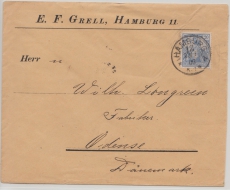 E. F. GRELL, HAMBURG 11.
HAMBURG
Herrn
Wilh. Longreen
Fabrikor
Odense
Dänemark.